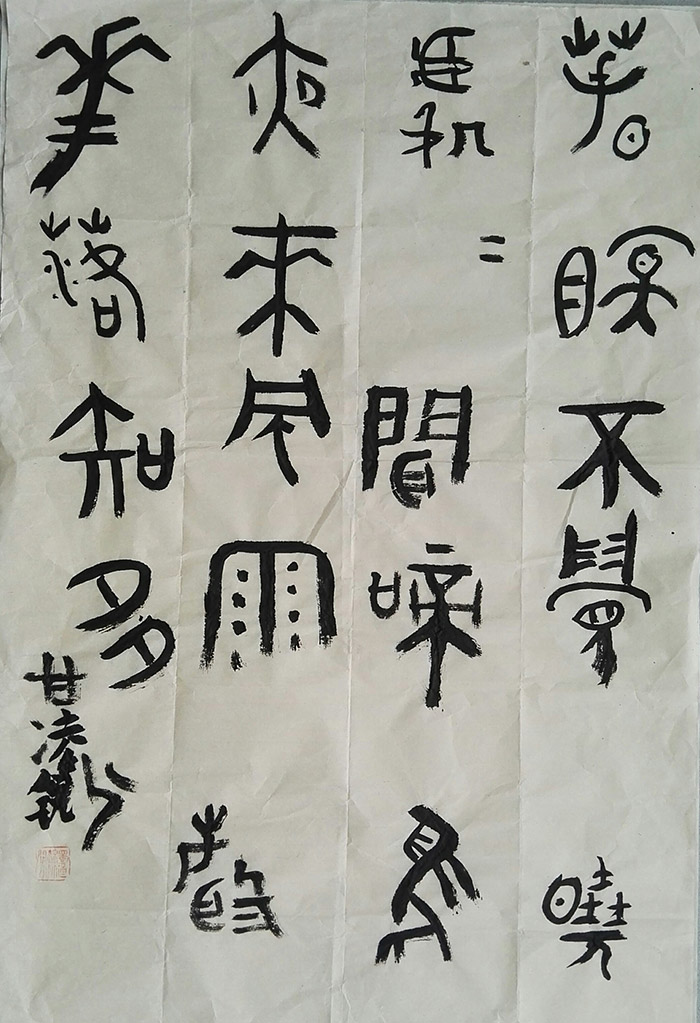 春眠不覺曉
處=聞啼鳥
夜來風雨聲
華落知多少
甘凌